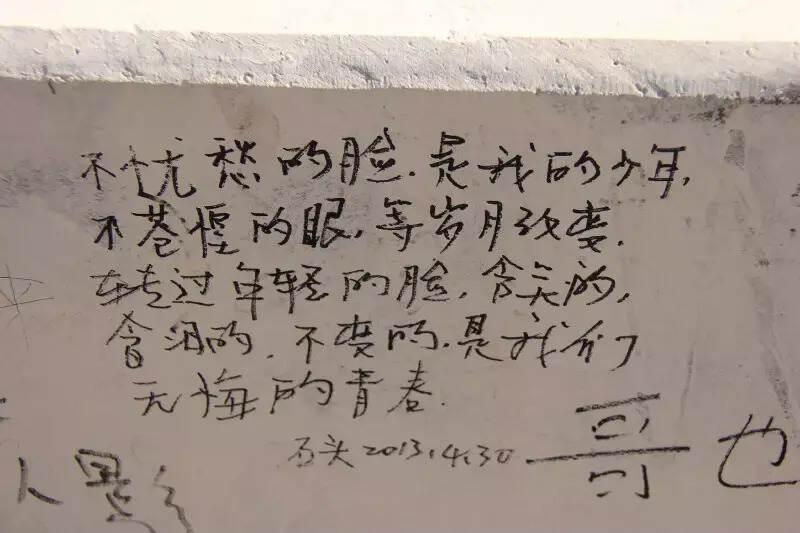 不忧愁的脸.是我的少年,
不苍惶的眼,等岁月改变.
转过年轻的脸,含笑的,
含泪的,不变的,是我们
无悔的青春.
石头2013.4.30
哥也
人影